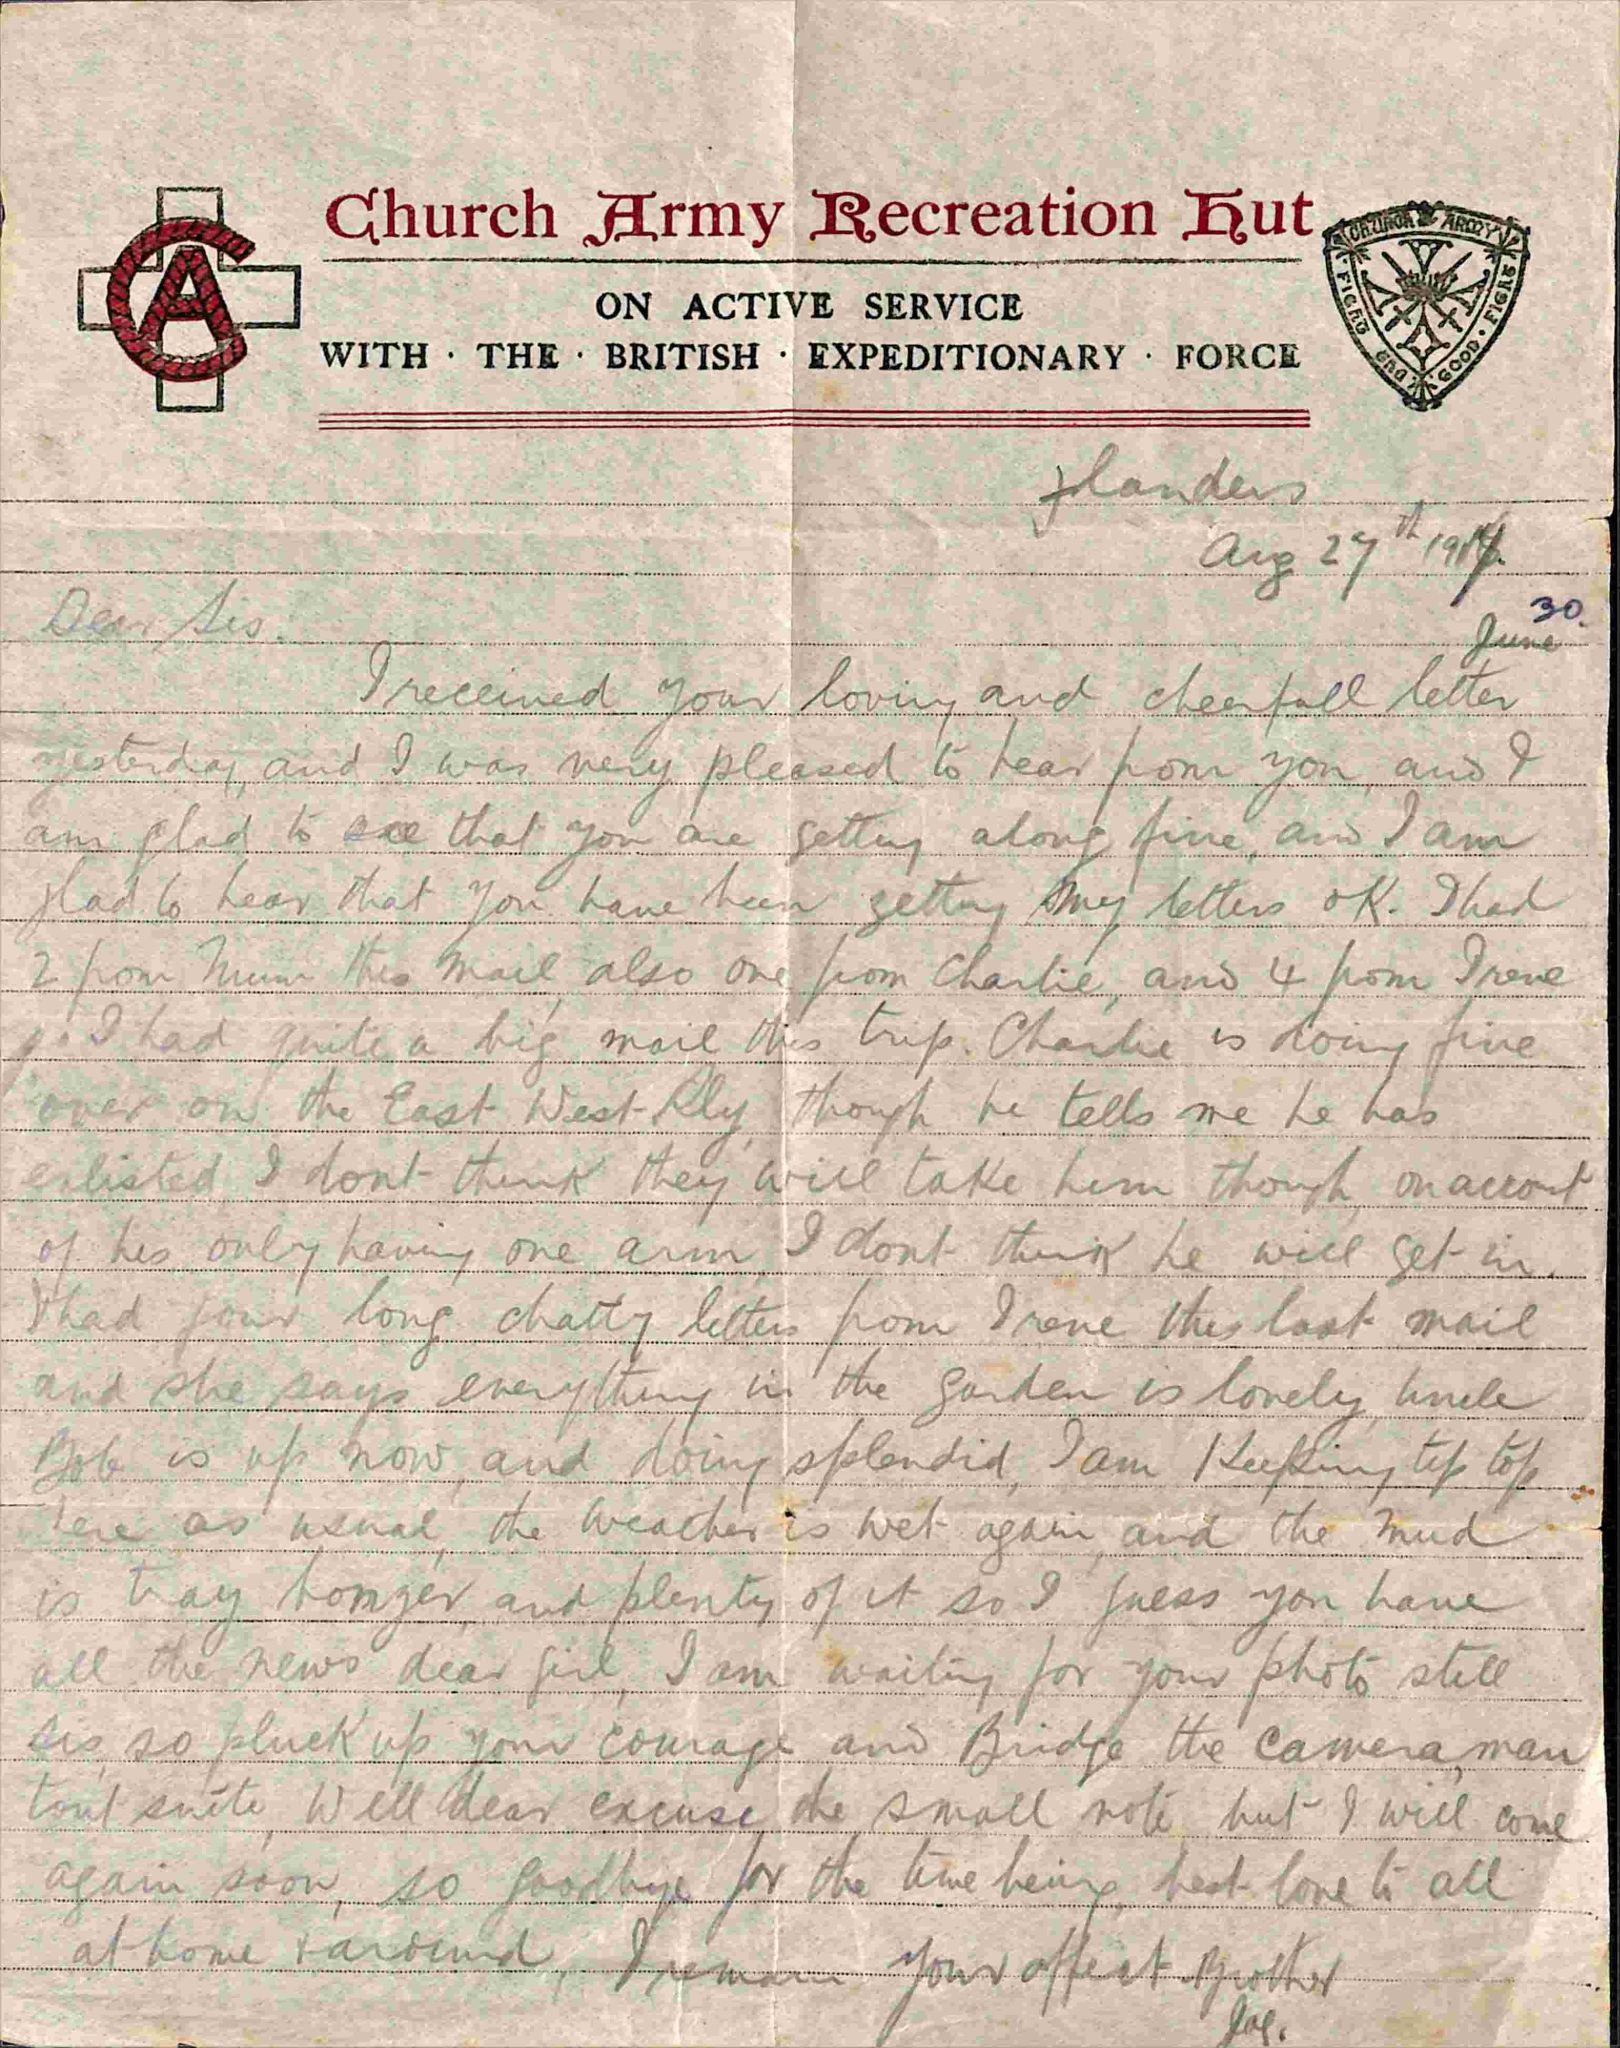 Church Army Recreation Hut
CA
CHURCH ARMY
FIGHT THE GOOD FIGHT
ON ACTIVE SERVICE
WITH · THE · BRITISH · EXPEDITIONARY · FORCE
Flanders
Aug 27th 1917.
30.
June
Dear Sis.
I received your loving and cheerfull letter
yesterday, and I was very pleased to hear from you, and I
am glad to see that you are getting along fine, and I am
glad to hear that you have been getting my letters OK. I had
2 from Mum this mail, also one from Charlie, and 4 from Irene
so I had quite a big mail this trip. Charlie is doing fine
over on the East-West Rly, though he tells me he has
enlisted, I dont think they will take him though, on account
of his only having one arm, I dont think he will get in.
I had four long chatty letters from Irene this last mail
and she says everything in the garden is lovely, Uncle
Bob is up now, and doing splendid, I am Keeping tip top
here as usual, the weather is wet again, and the mud
is tray bomzer, and plenty of it so I guess you have
all the news dear girl, I am waiting for your photo still
sis, so pluck up your courage and Bridge the camera, man
tout suite, Well dear excuse the small note but I will come
again soon, so goodbye for the time being, best love to all
at home & around, I remain Your affect Brother